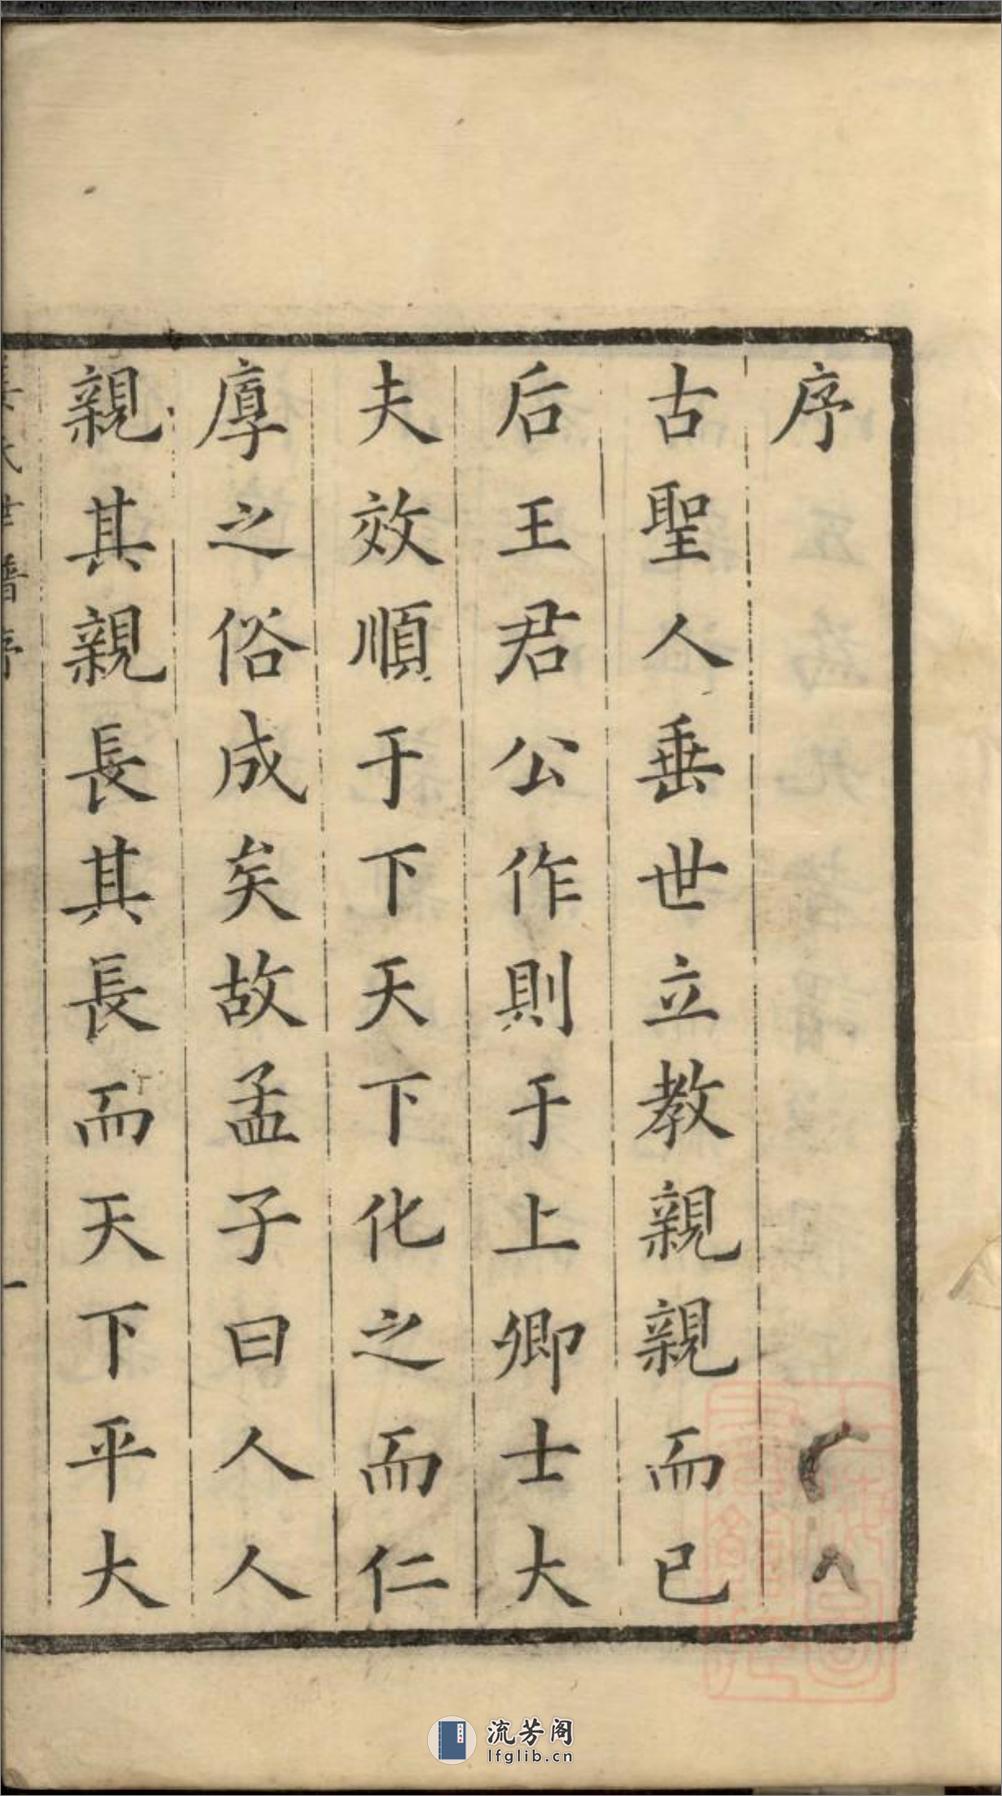 序
古聖人垂世立教親親而已
后王君公作則于上卿士大
夫效順于下天下化之而仁
厚之俗成矣故孟子曰人人
親其親長其長而天下平大
氏世譜序
一
流芳阁
lfglib.cn